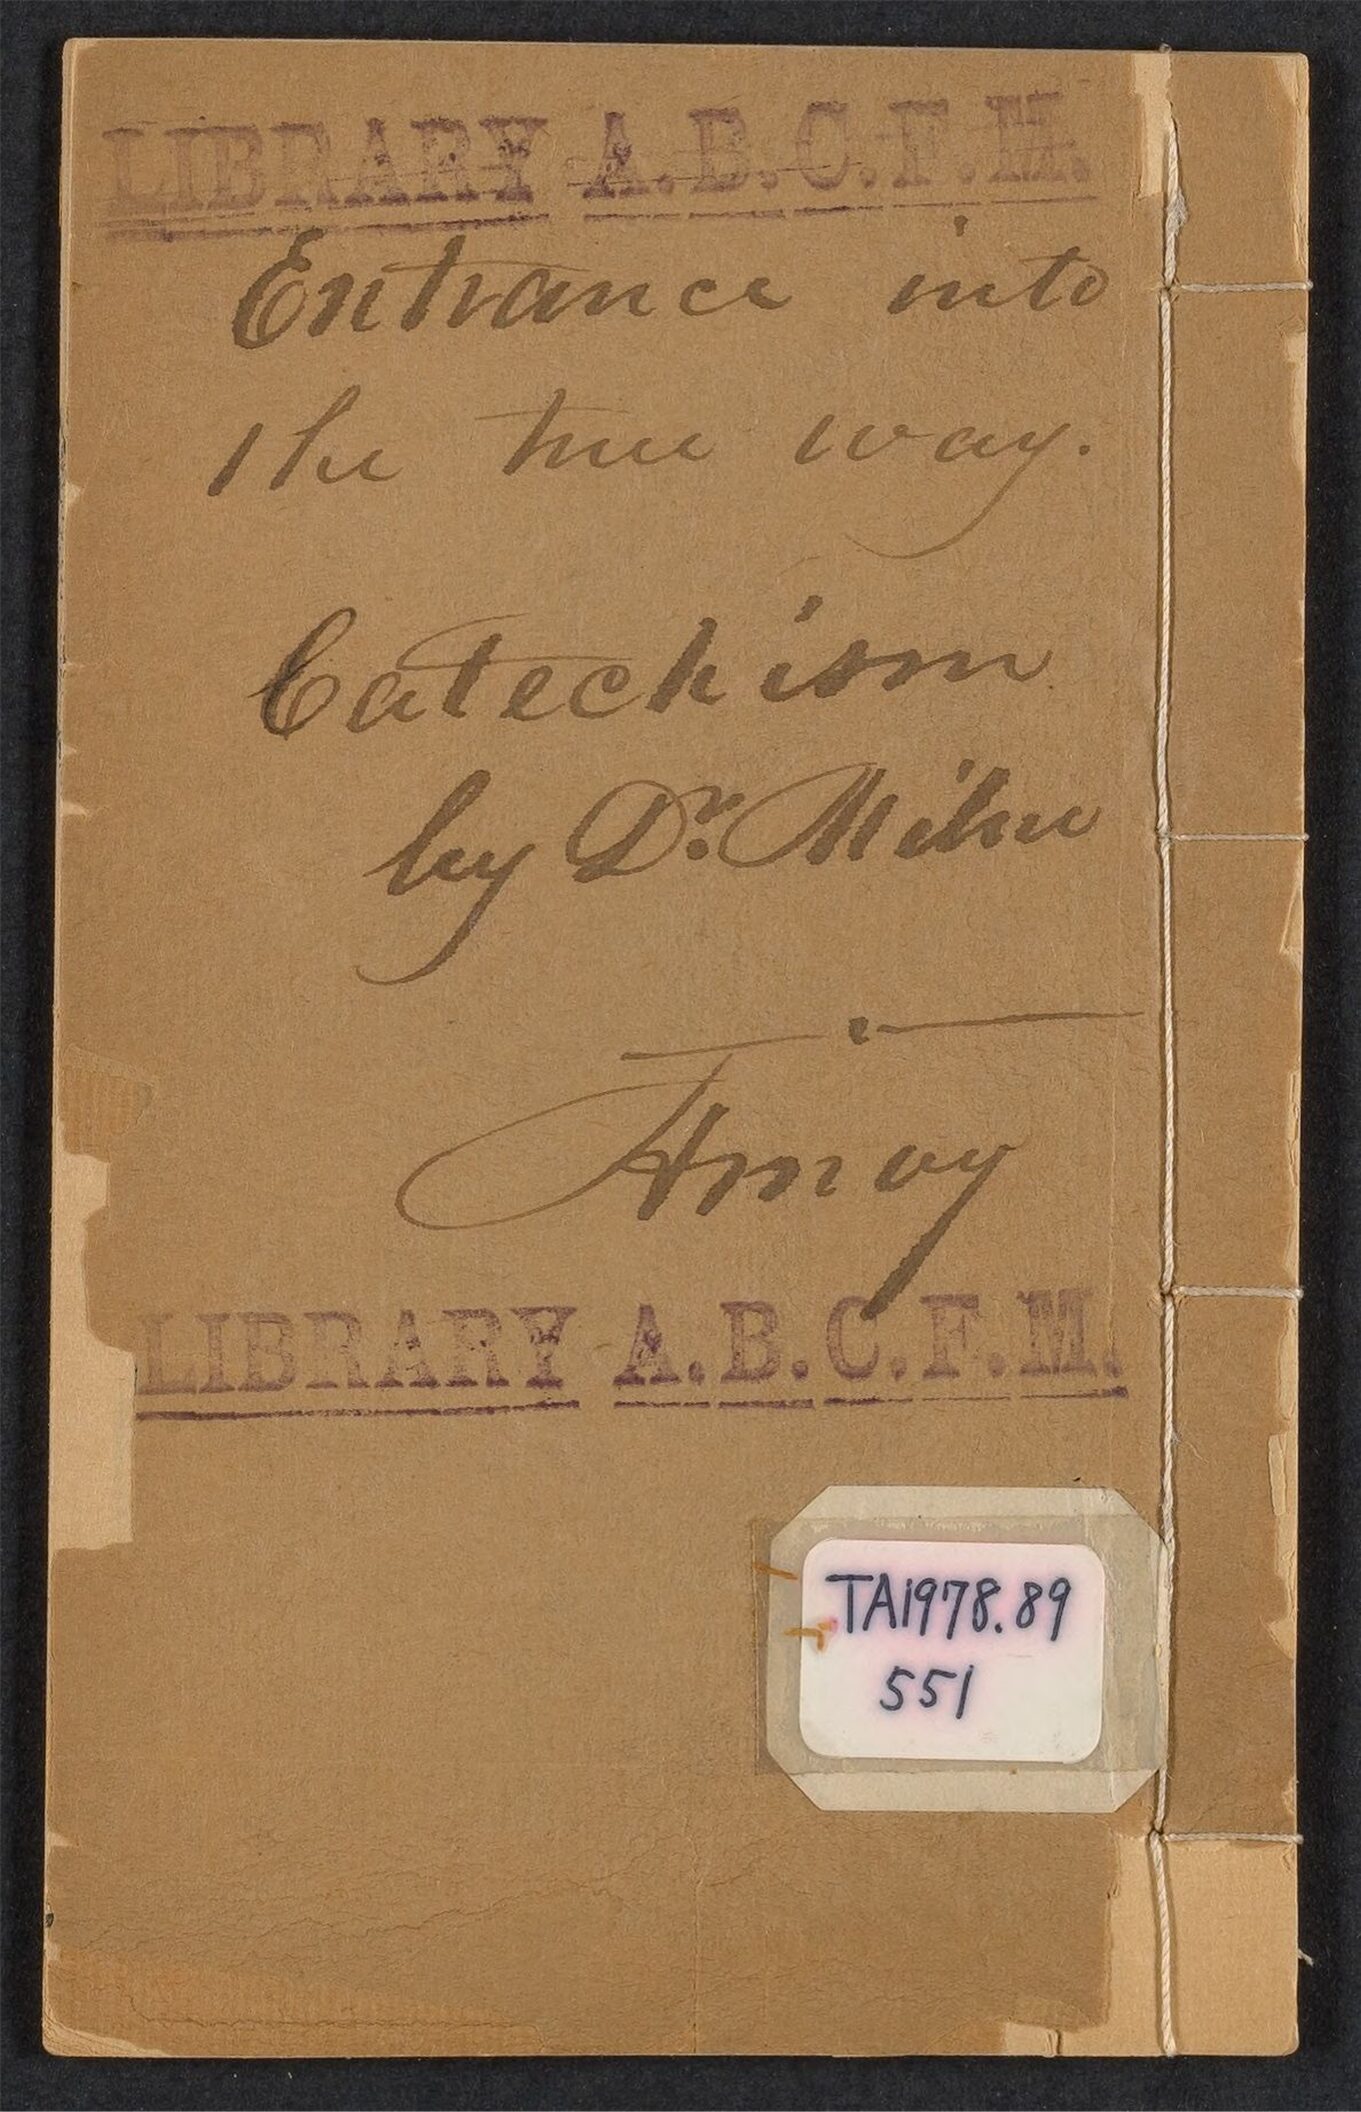 LIBRARY A.B.C.F.M.
Entrance into
the true way.
Catechism
by Dr. Milne
Amoy
LIBRARY A.B.C.F.M.
TA1978.89
551